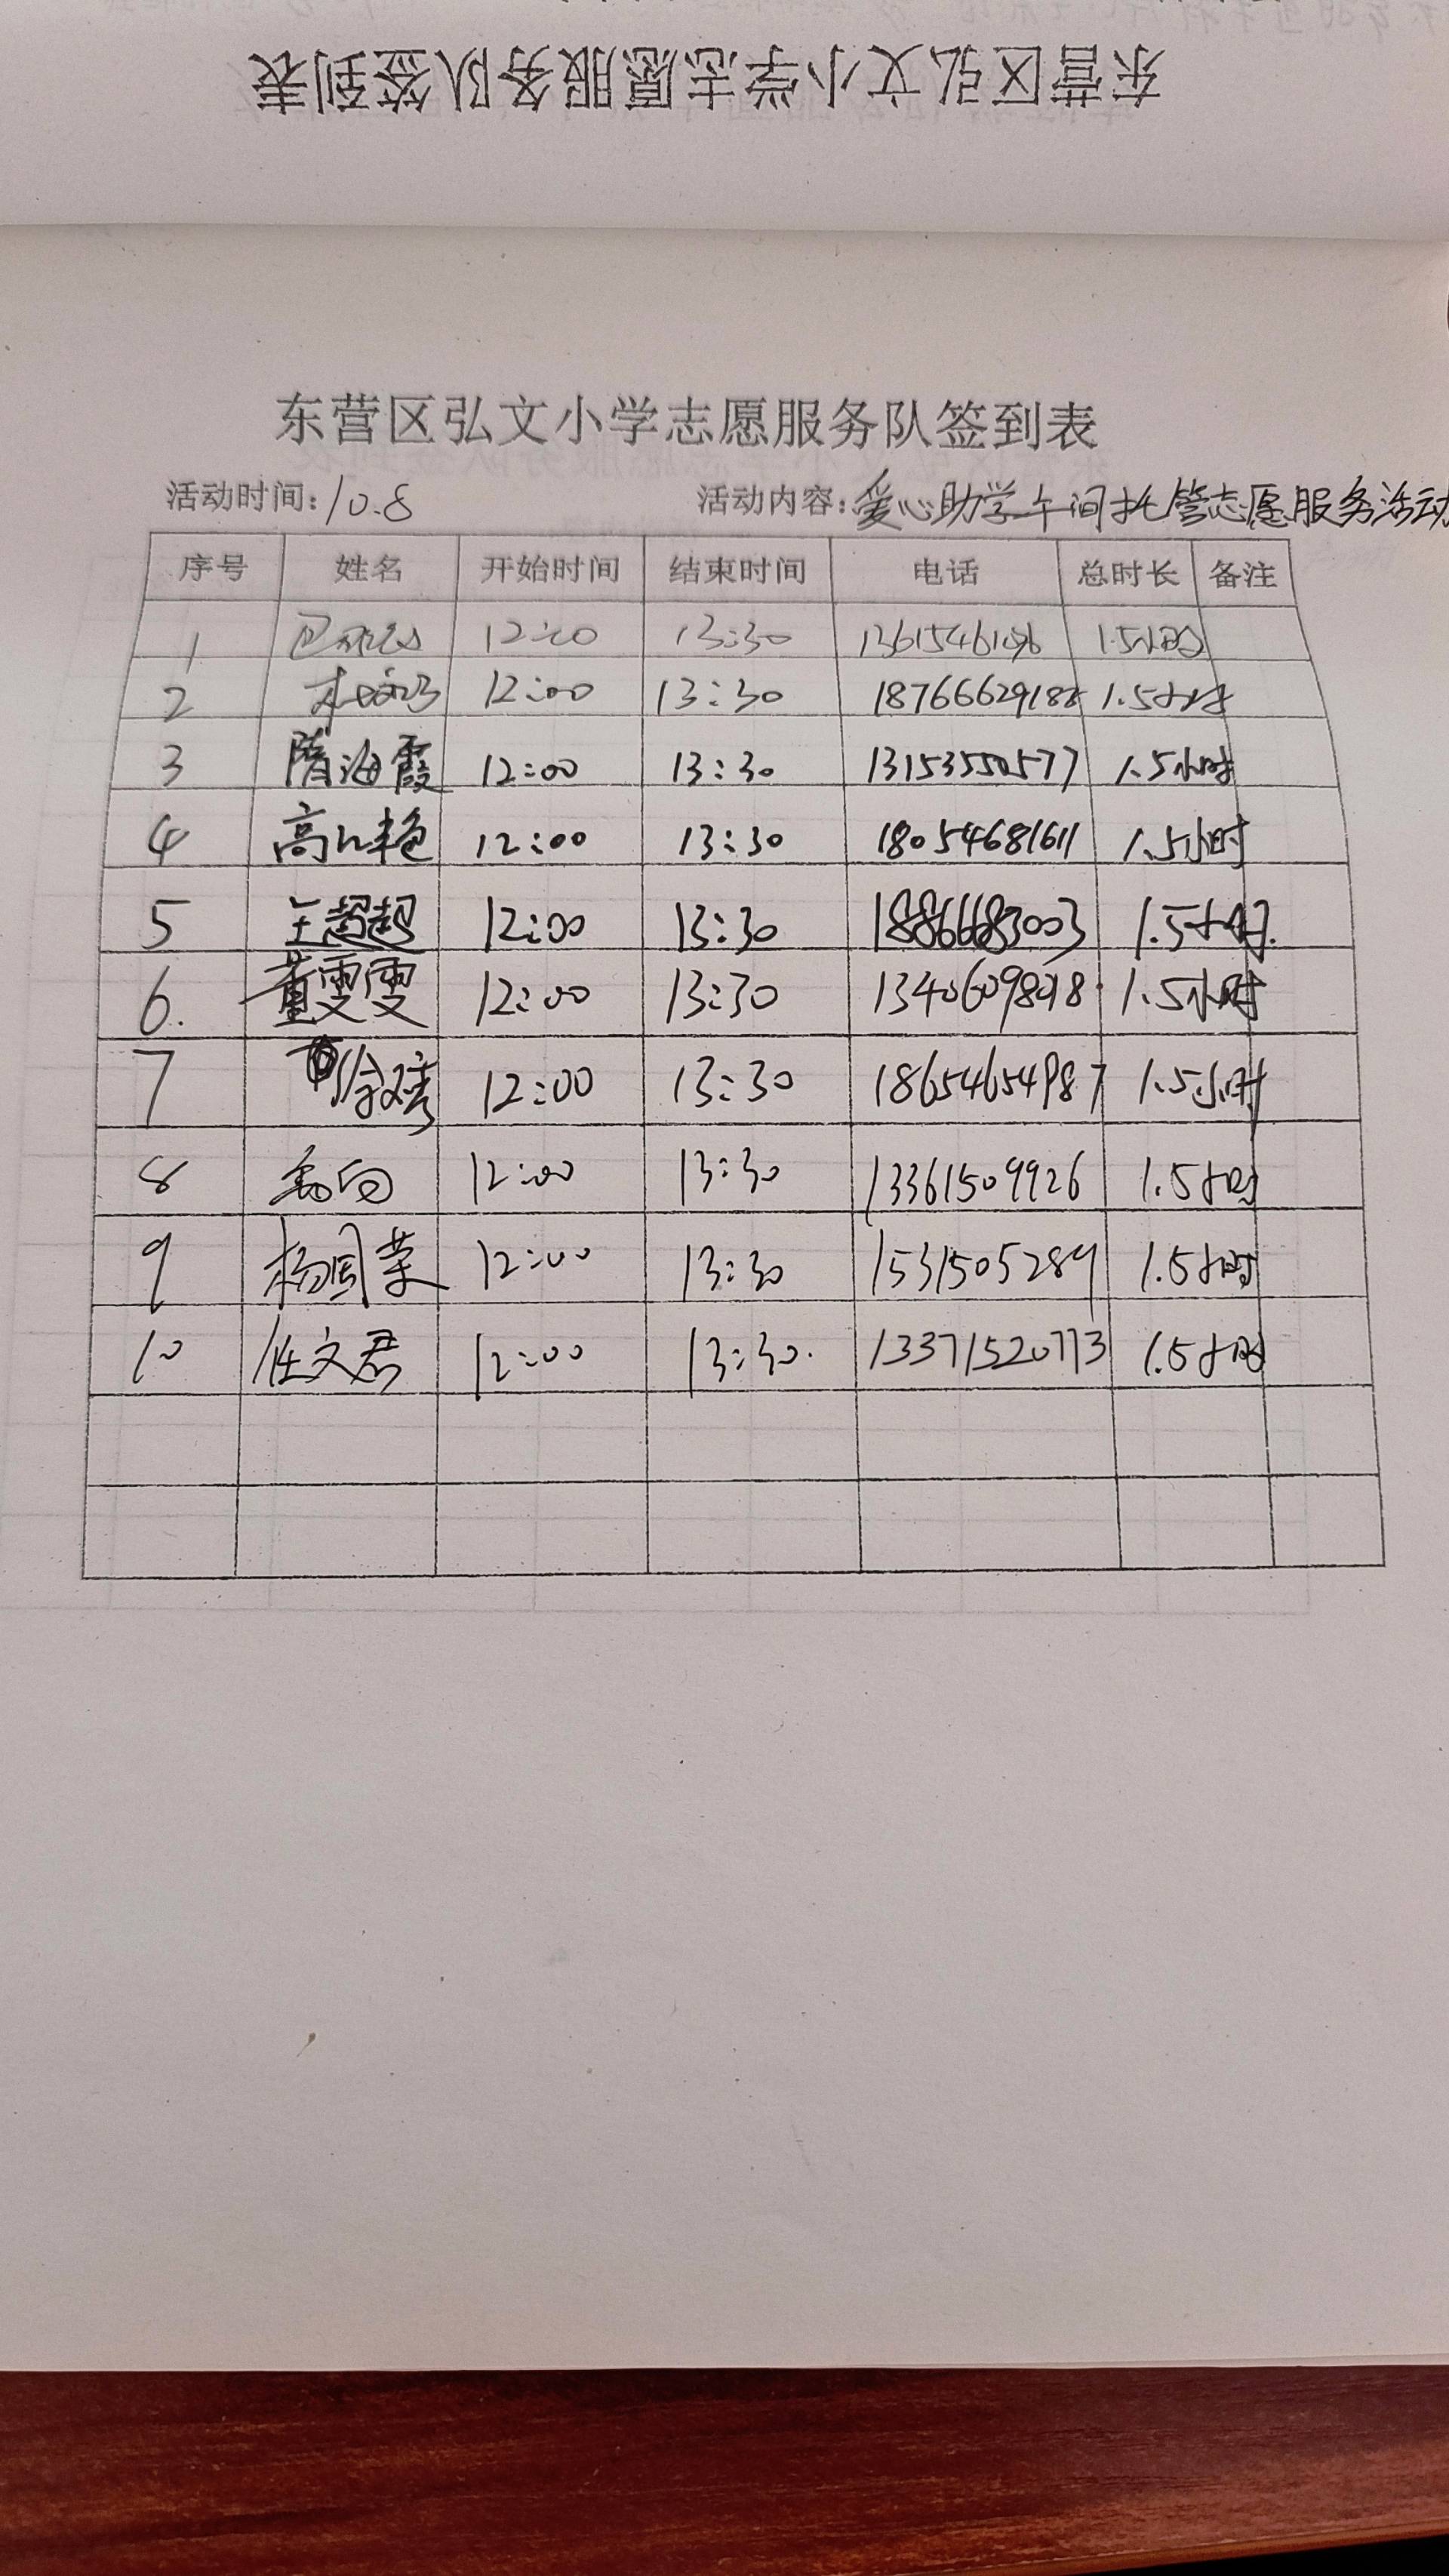 东营区弘文小学志愿服务队签到表
东营区弘文小学志愿服务队签到表
活动时间:10.8 活动内容:爱心助学午间托管志愿服务活动
序号 姓名 开始时间 结束时间 电话 总时长 备注
1 12:00 13:30 1.5小时
2 12:00 13:30 1.5小时
3 隋海霞 12:00 13:30 1.5小时
4 12:00 13:30 18054681611 1.5小时
5 王超超 12:00 13:30 18866683003 1.5小时.
6. 董雯雯 12:00 13:30 1.5小时
7 12:00 13:30 18654654987 1.5小时
8 12:00 13:30 13361509926 1.5小时
9 12:00 13:30 1.5小时
10 任文君 12:00 13:30. 13371520773 1.5小时